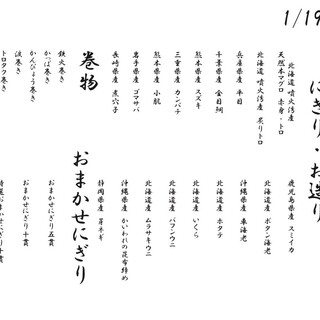 1/19
にぎり・お造り
北海道 噴火湾産
天然本マグロ 赤身・トロ
北海道 噴火湾産 炙りトロ
兵庫県産 平目
千葉県産 金目鯛
熊本県産 スズキ
三重県産 カンパチ
熊本県産 小肌
岩手県産 ゴマサバ
長崎県産 煮穴子
鹿児島県産 スミイカ
北海道産 ボタン海老
沖縄県産 車海老
北海道産 ホタテ
北海道産 いくら
北海道産 バフンウニ
北海道産 ムラサキウニ
沖縄県産 かいわれの昆布締め
静岡県産 芽ネギ
巻物
鉄火巻き
かっぱ巻き
かんぴょう巻き
トロタク巻き
おまかせにぎり
おまかせにぎり五貫
おまかせにぎり十貫
特選おまかせにぎり十貫